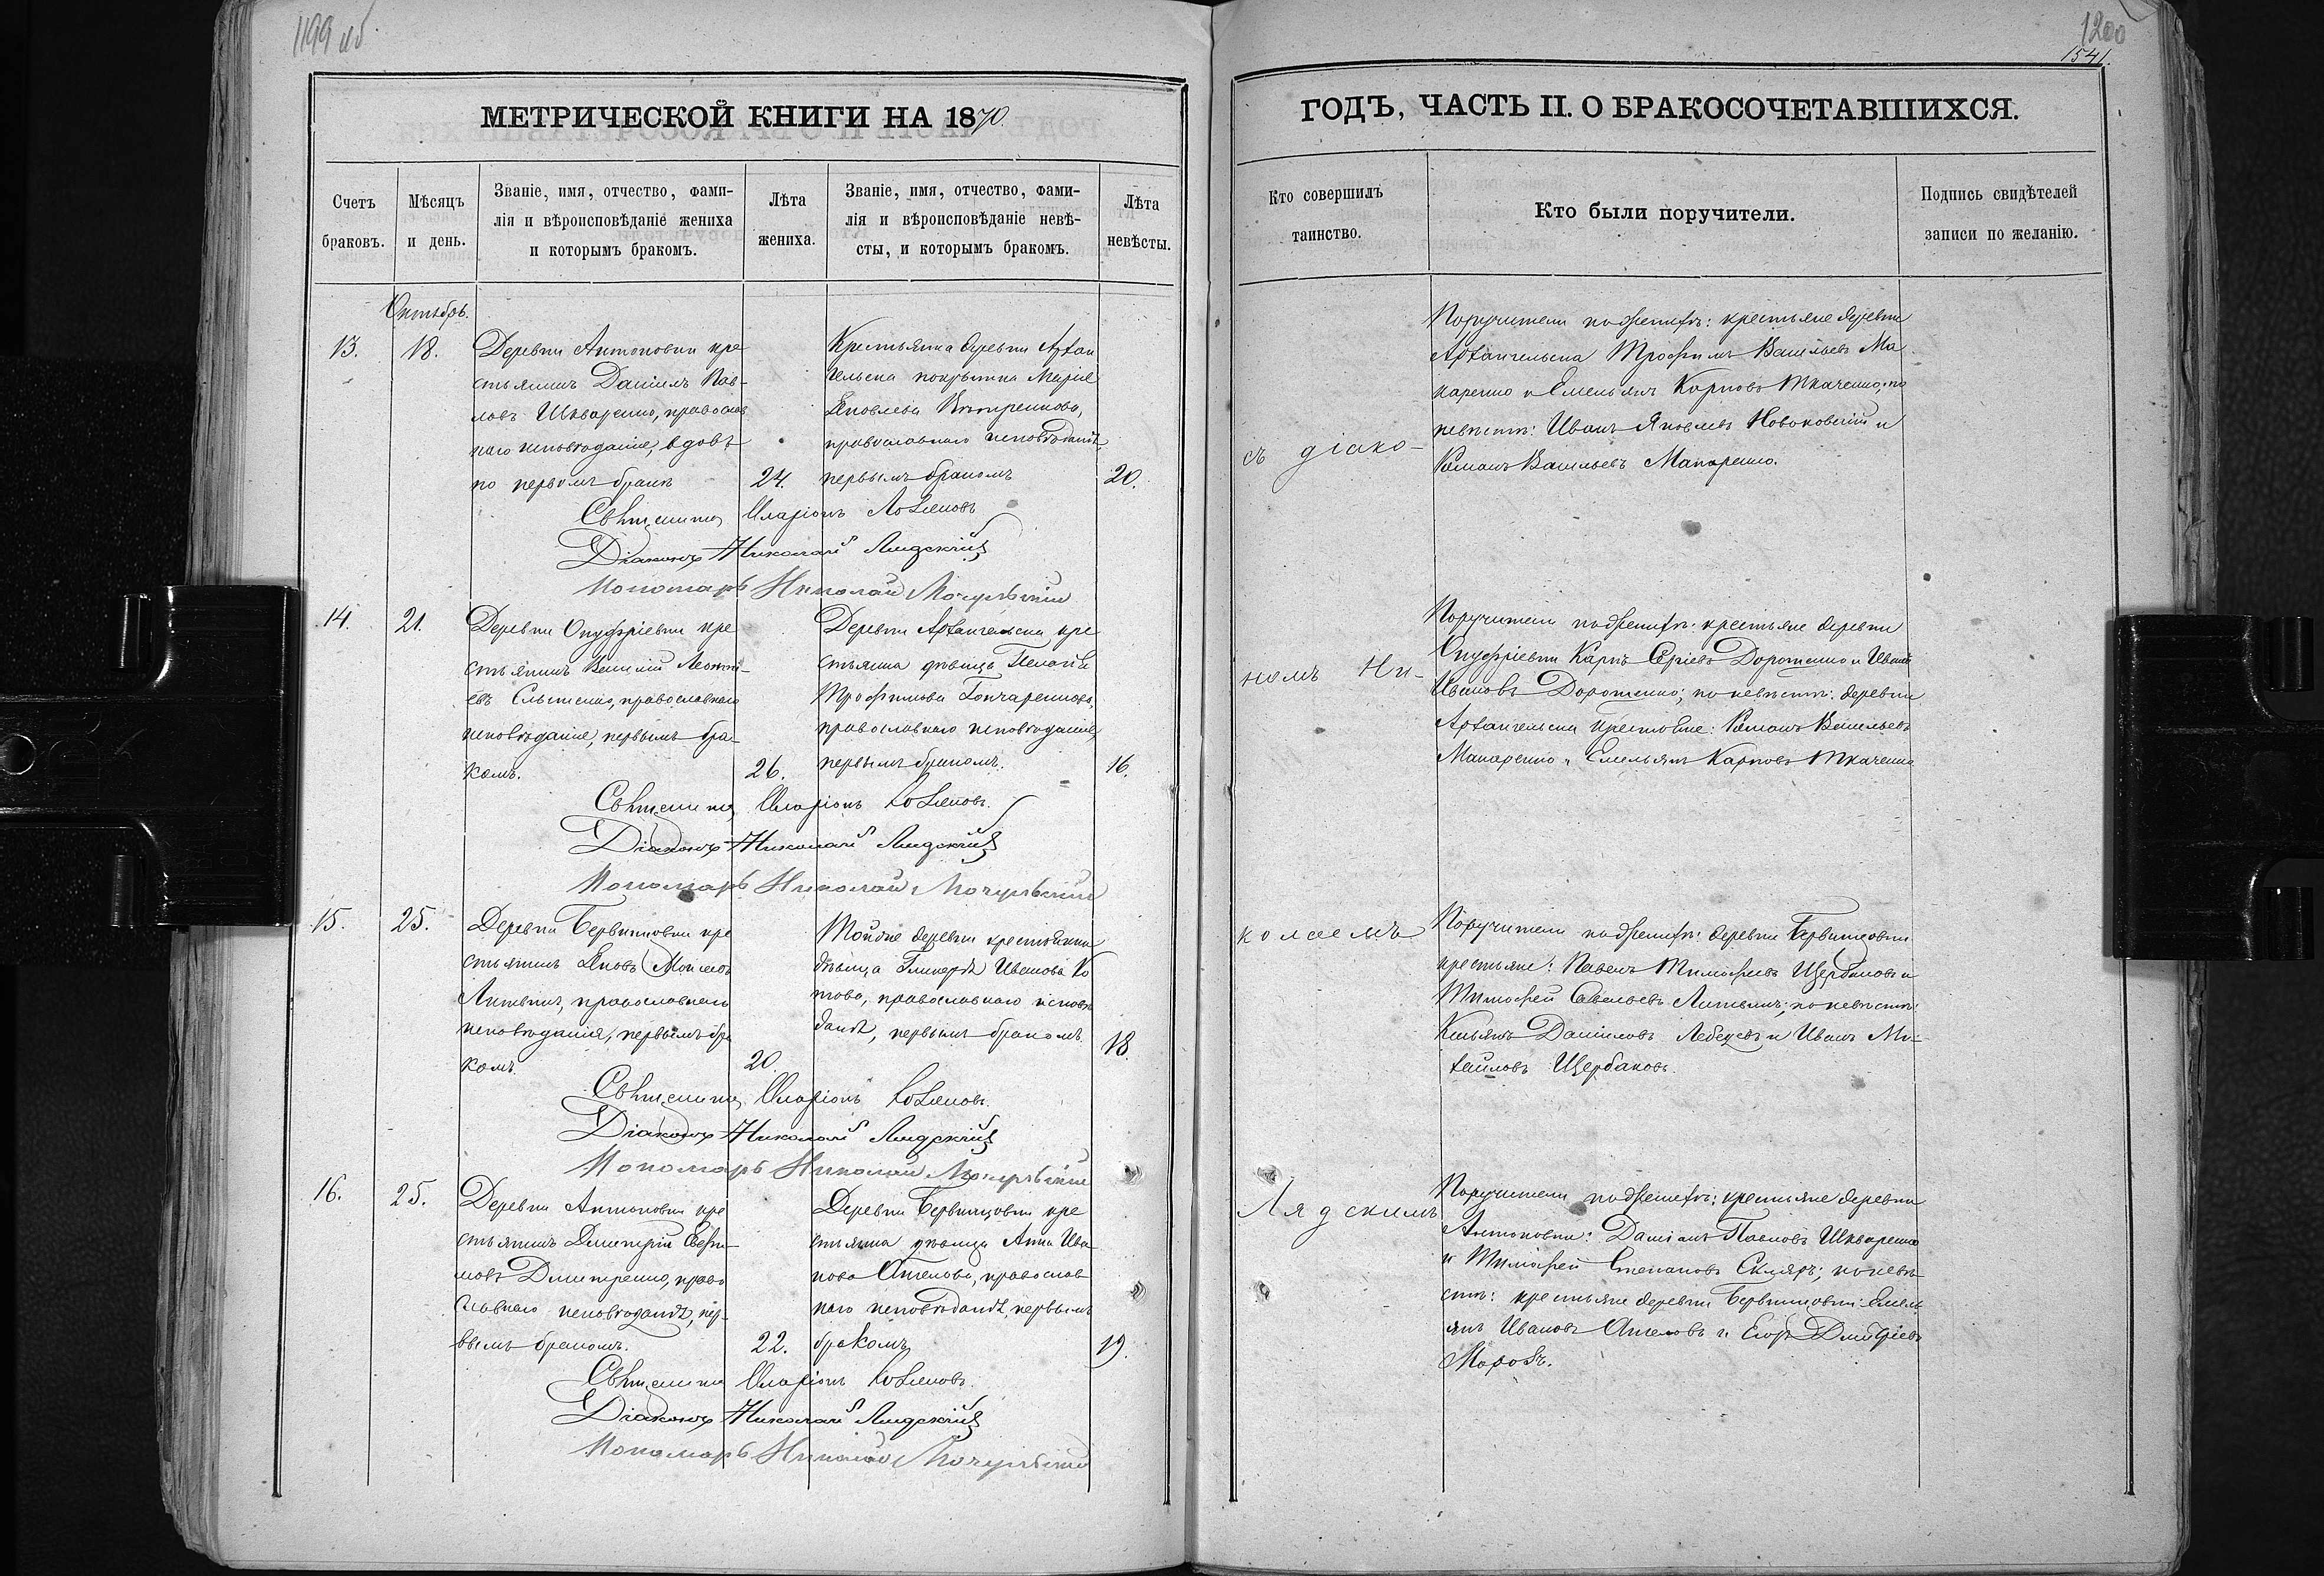 1199 об
1200
1541.
МЕТРИЧЕСКОЙ КНИГИ НА 1870.
Счетъ браковъ.
Мѣсяцъ и день.
Званіе, имя, отчество, фами-
лія и вѣроисповѣданіе жениха
и которымъ бракомъ.
Лѣта жениха.
Званіе, имя, отчество, фами-
лія и вѣроисповѣданіе невѣ-
сты, и которымъ бракомъ.
Лѣта невѣсты.
Октябрь.
13.
18.
Деревни Антоновки кре
стьянинъ Даніилъ Пав-
ловъ Шкваренко, православ
наго исповѣданія, вдовъ
по первомъ бракѣ
24.
Крестьянка деревни Архан
гельска
Яковлева
православнаго исповѣданія,
первымъ бракомъ
20.
Священникъ Иларіонъ
Діаконъ Николай Лядскій
Пономарь Николай Мочульскій
14.
21.
Деревни Онуфріевки кре
стьянинъ Василій Леонті-
евъ православнаго
исповѣданія, первымъ бра-
комъ.
26.
Деревни Архангельска кре
стьянка дѣвица Пелагія
Трофимова Гончаренкова,
православнаго исповѣданія,
первымъ бракомъ.
16.
Священникъ Иларіонъ
Діаконъ Николай Лядскій
Пономарь Николай Мочульскій
15.
25.
Деревни кре
стьянинъ Яковъ Моисеевъ
Литвинъ, православнаго
исповѣданія, первымъ бра
комъ.
20.
Тойже деревни крестьянка
дѣвица Гликерія Иванова Ко
това, православнаго исповѣ
данія, первымъ бракомъ.
18.
Священникъ Иларіонъ
Діаконъ Николай Лядскій
Пономарь Николай Мочульскій
16.
25.
Деревни Антоновки кре
стьянинъ Димитрій Евфи-
мовъ Дмитренко, право
славнаго исповѣданія, пер-
вымъ бракомъ.
22.
Деревни кре
стьянка дѣвица Анна Ива-
нова православ
наго исповѣданія, первымъ
бракомъ
19.
Священникъ Иларіонъ
Діаконъ Николай Лядскій
Пономарь Николай Мочульскій
ГОДЪ, ЧАСТЬ II. О БРАКОСОЧЕТАВШИХСЯ.
Кто совершилъ таинство.
Кто были поручители.
Подпись свидѣтелей записи по желанію.
съ діако-
номъ Ни-
колаемъ
Лядскимъ
Поручители по женихѣ: крестьяне деревни
Архангельска Трофимъ Васильевъ Ма
каренко и Емельянъ Карповъ Ткаченко; по
невѣстѣ: Иванъ Яковлевъ и
Романъ Васильевъ Макаренко.
Поручители по женихѣ: крестьяне деревни
Онуфріевки Карпъ Дорошенко и Иванъ
Ивановъ Дорошенко; по невѣстѣ: деревни
Архангельска крестьяне: Романъ Васильевъ
Макаренко и Емельянъ Карповъ Ткаченко
Поручители по женихѣ: деревни
крестьяне: Павелъ Тимофеевъ Щербаковъ и
Тимофей Савельевъ Литвинъ; по невѣстѣ:
Касьянъ Даніиловъ Лебедевъ и Иванъ Ми-
хаиловъ Щербаковъ.
Поручители по женихѣ: крестьяне деревни
Антоновки: Даніилъ Павловъ Шкваренко
и Тимофей Степановъ Скляръ; по невѣ
стѣ: крестьяне деревни Емель
янъ Ивановъ и Егоръ Дмитріевъ
Морозъ.